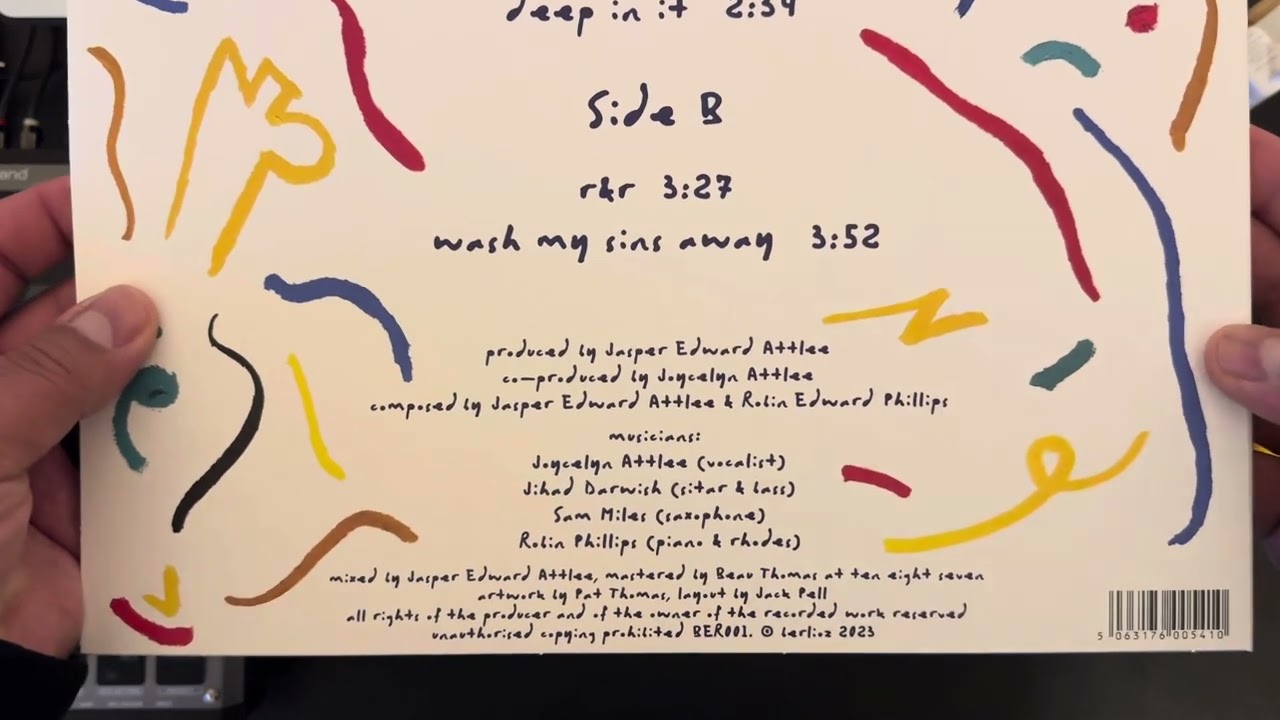 deep in it 2:34
Side B
r&r 3:27
wash my sins away 3:52
produced by Jasper Edward Attlee
co-produced by Joycelyn Attlee
composed by Jasper Edward Attlee & Robin Edward Phillips
musicians:
Joycelyn Attlee (vocalist)
Jihad Darwish (sitar & bass)
Sam Miles (saxophone)
Robin Phillips (piano & rhodes)
mixed by Jasper Edward Attlee, mastered by Beau Thomas at ten eight seven
artwork by Pat Thomas, layout by Jack Pell
all rights of the producer and of the owner of the recorded work reserved
unauthorised copying prohibited BER001. © berlioz 2023
5 063176 005410